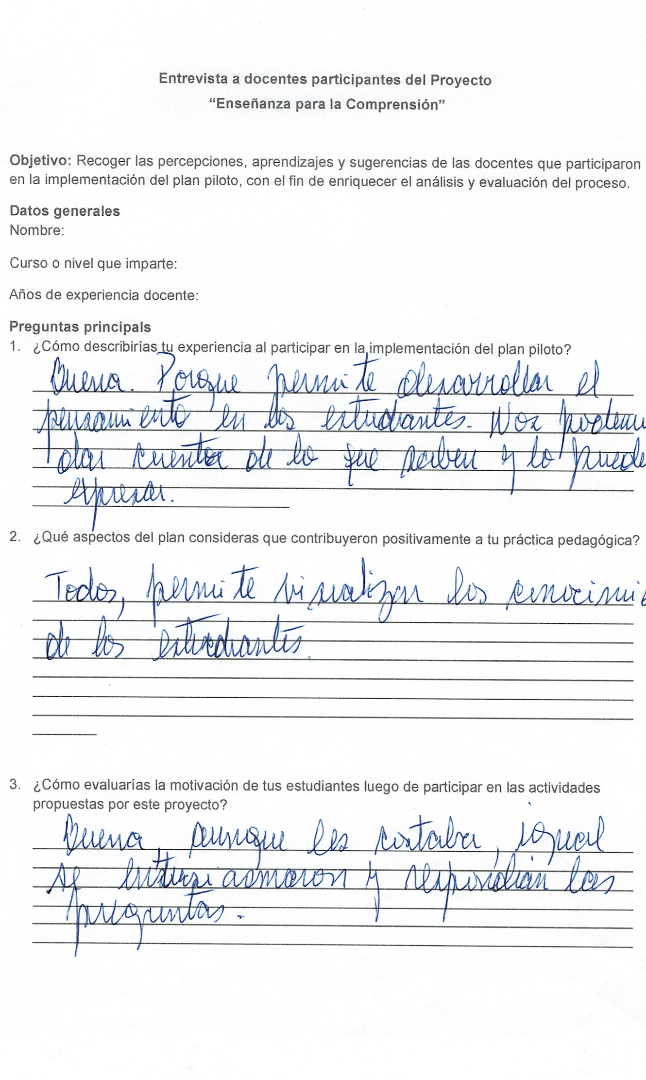 Entrevista a docentes participantes del Proyecto
“Enseñanza para la Comprensión”
Objetivo: Recoger las percepciones, aprendizajes y sugerencias de las docentes que participaron
en la implementación del plan piloto, con el fin de enriquecer el análisis y evaluación del proceso.
Datos generales
Nombre:
Curso o nivel que imparte:
Años de experiencia docente:
Preguntas principals
1. ¿Cómo describirías tu experiencia al participar en la implementación del plan piloto?
Buena. Porque permite desarrollar el
pensamiento en los estudiantes. Nos podemo
dar cuenta de lo que saben y lo puede
expresar.
2. ¿Qué aspectos del plan consideras que contribuyeron positivamente a tu práctica pedagógica?
Todos, permite visualizar los conocimie
de los estudiantes.
3. ¿Cómo evaluarías la motivación de tus estudiantes luego de participar en las actividades
propuestas por este proyecto?
Buena, aunque les costaba, igual
se entusiasmaron y respondían las
preguntas.